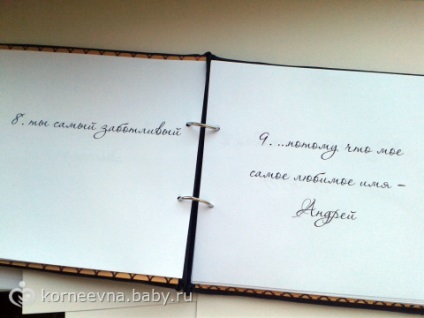 8. ты самый заботливый
9. ...потому что мое
самое любимое имя -
Андрей
korneevna.baby.ru